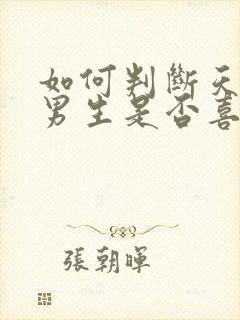 如何判斷天
男生是否喜
張朝暉